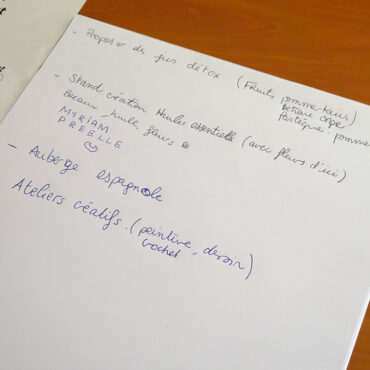 - Proposer des jus détox (Fruits, pomme-kiwi,
Betterave orge
Pastèque, pomme
- Stand création Huile essentielle (avec fleurs d'ici)
Becaux, huile, fleurs
MYRIAM
PREELLE
- Auberge espagnole
Ateliers créatifs. (peinture, dessin,
crochet)